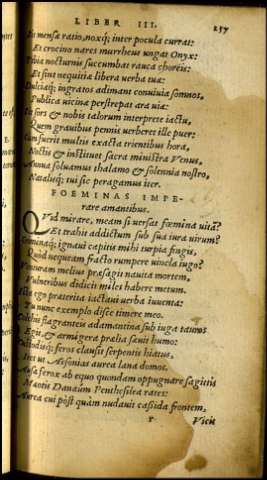 LIBER III. 257
In mensæ ratio, noxq́; inter pocula currat:
Et crocino nares murrheus ungat Onyx:
Tibia nocturnis succumbat rauca choreis:
Et sint nequitiæ libera verba tuæ:
Dulciaq́; ingratos adimant conuiuia somnos,
Publica vicinæ perstrepat aura viæ:
Sit sors & nobis talorum interprete iactu,
Quem grauibus pennis verberet ille puer:
Cum fuerit multis exacta trientibus hora,
Noctis & instituet sacra ministra Venus,
Annua soluamus thalamo & solennia nostro,
Natalisq́; tui sic peragamus iter.
FOEMINAS IMPE-
rare amantibus.
QVid mirare, meam si versat fœmina vitã?
Et trahit addictum sub sua iura virum?
Criminaq́; ignaui capitis mihi turpia fingis,
Quòd nequeam fracto rumpere vincla iugo?
Venturam melius præsagit nauita mortem,
Vulneribus didicit miles habere metum.
Ista ego præterita iactaui verba iuuenta:
Tu nunc exemplo disce timere meo.
Colchis flagrantes adamantina sub iuga tauros
Egit, & armigera prælia seuit humo:
Custodisq́; feros clausit serpentis hiatus,
Iret ut Æsonias aurea lana domos.
Ausa ferox ab equo quondam oppugnare sagittis
Mæotis Danaûm Penthesilea rates:
Aurea cui pòst quàm nudauit caßida frontem,
Vicit